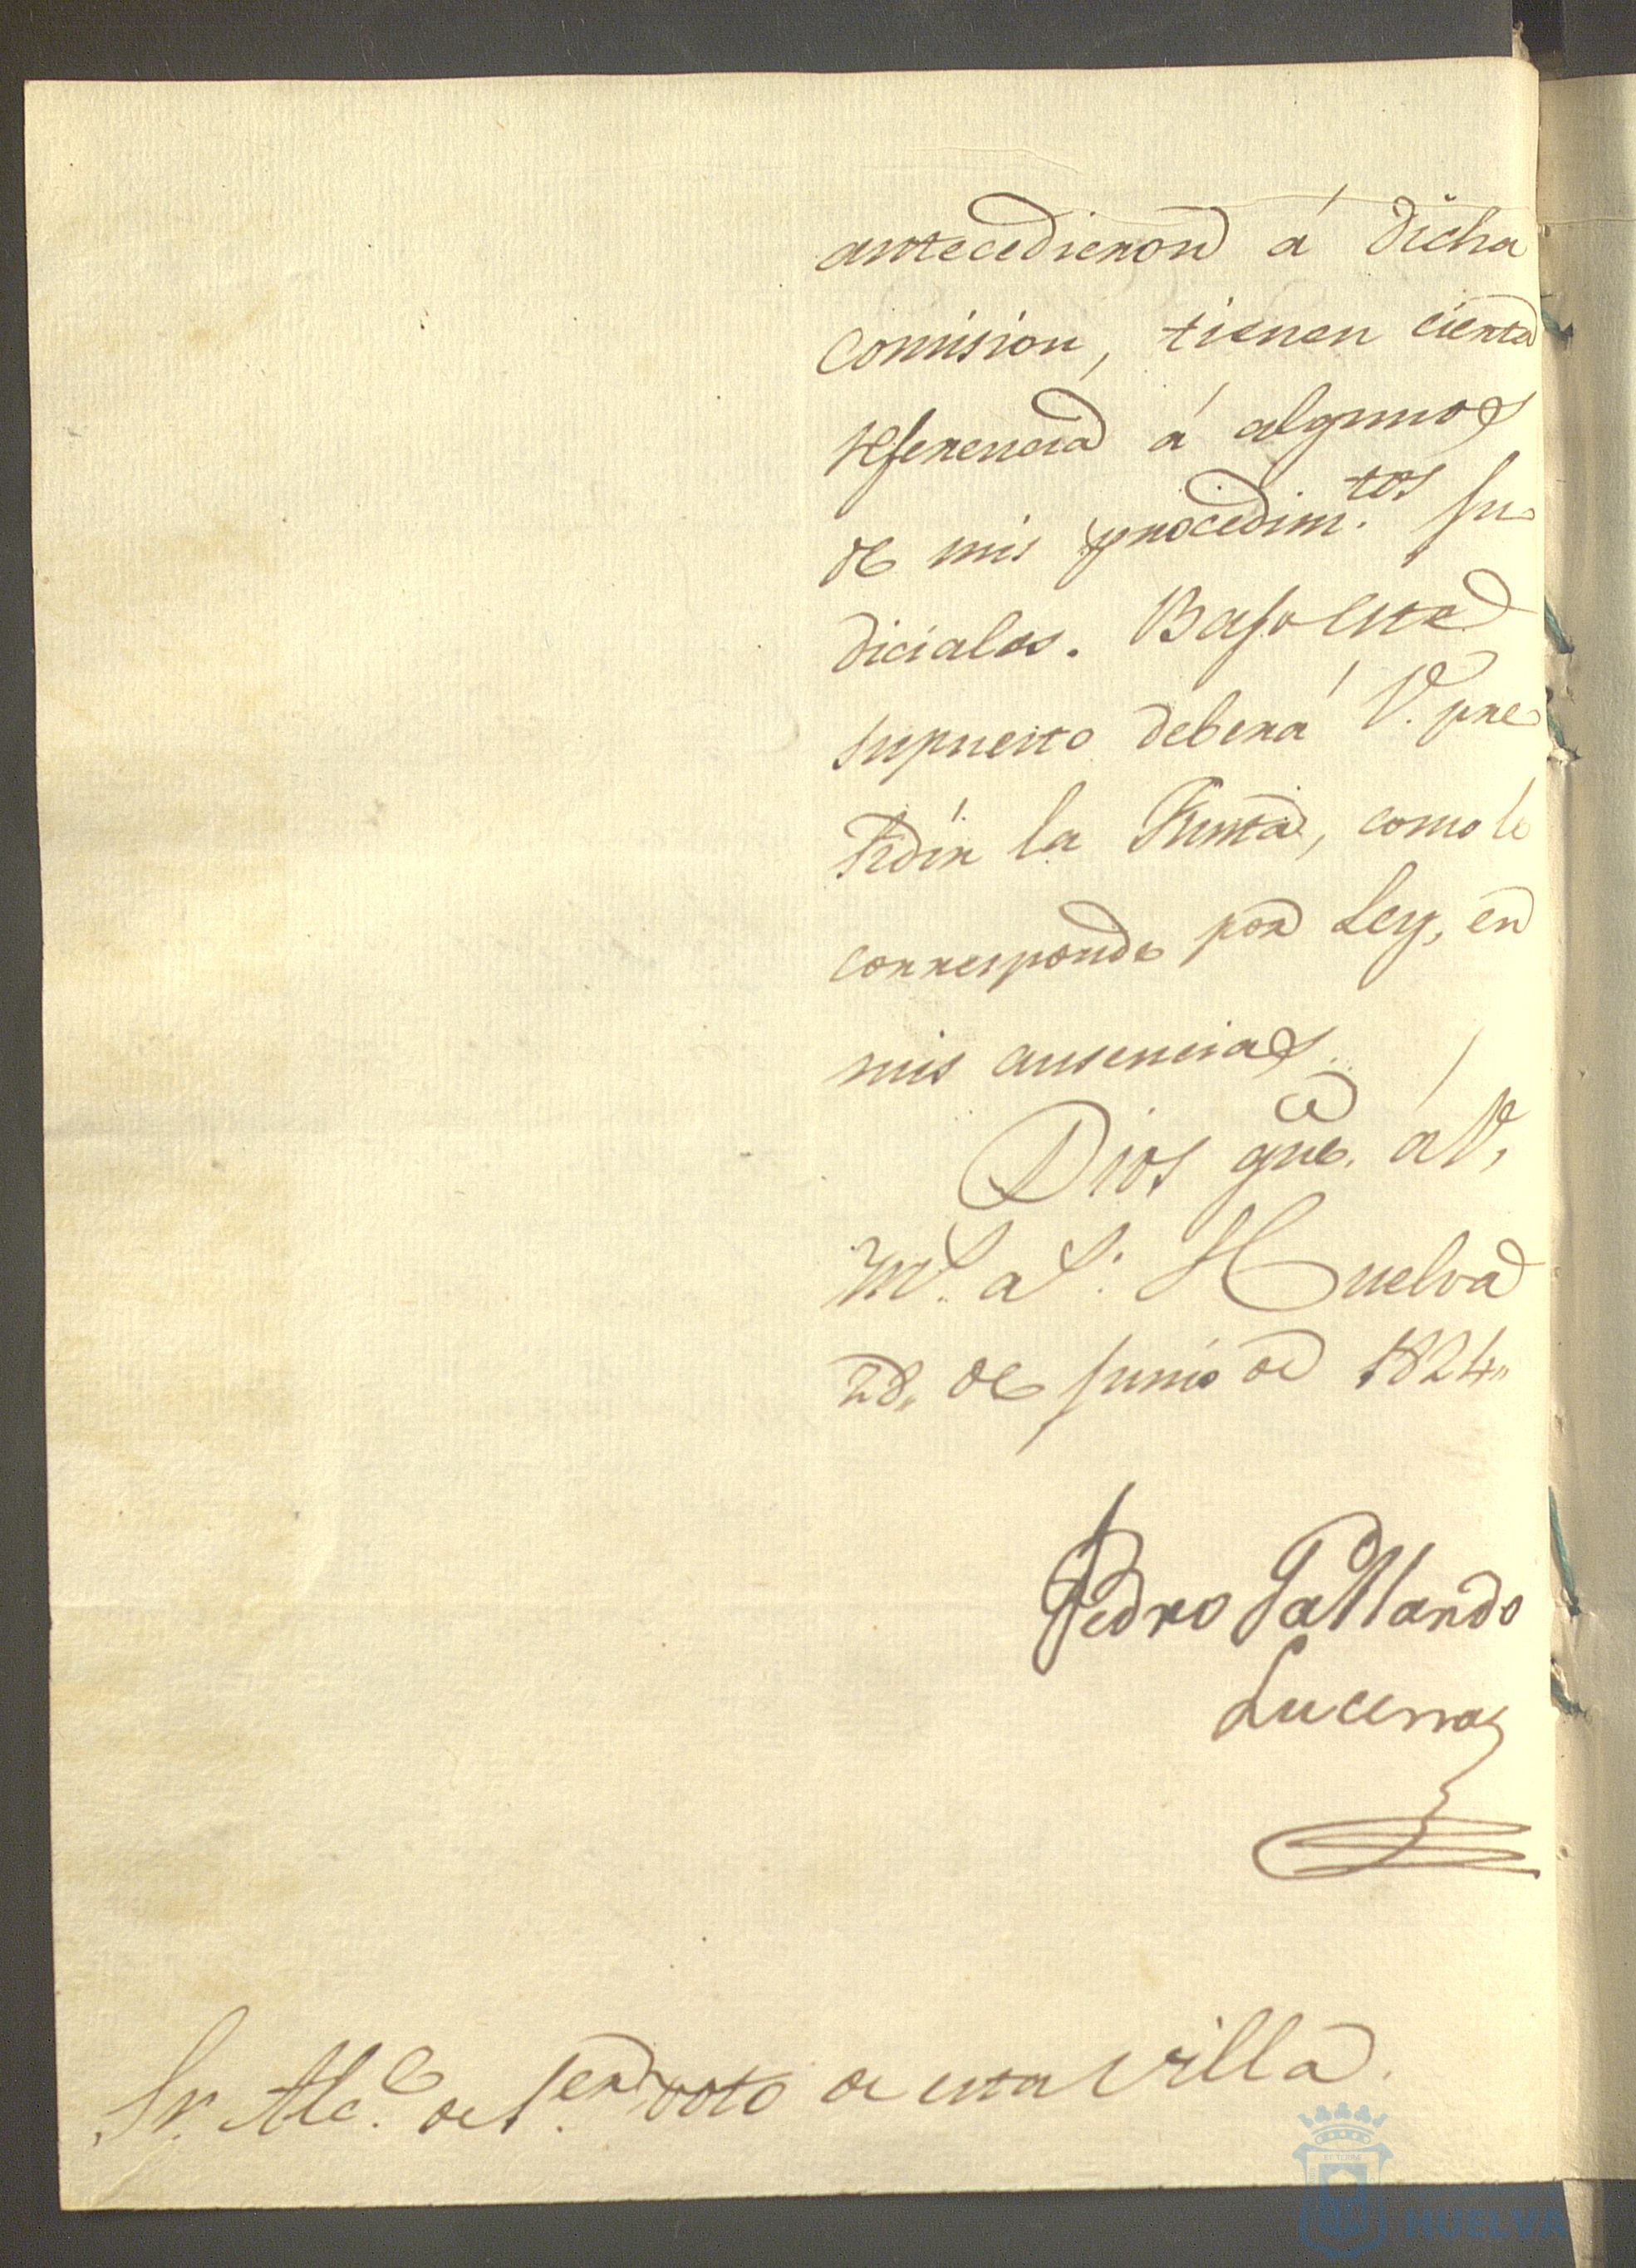 antecedieron á dicha
comision, tienen cierta
referencia á algunos
de mis procedim.tos Ju-
diciales. Bajo este
supuesto deberá V. pre
sidir la Junta, como le
corresponde por Ley, en
mis ausencias.
Dios gue. á V.
m.s a.s Huelva
28,, de Junio de 1824,,
Pedro Gallardo
Lucena
Sr. Alc.e de 1.er voto de esta villa.
HUELVA